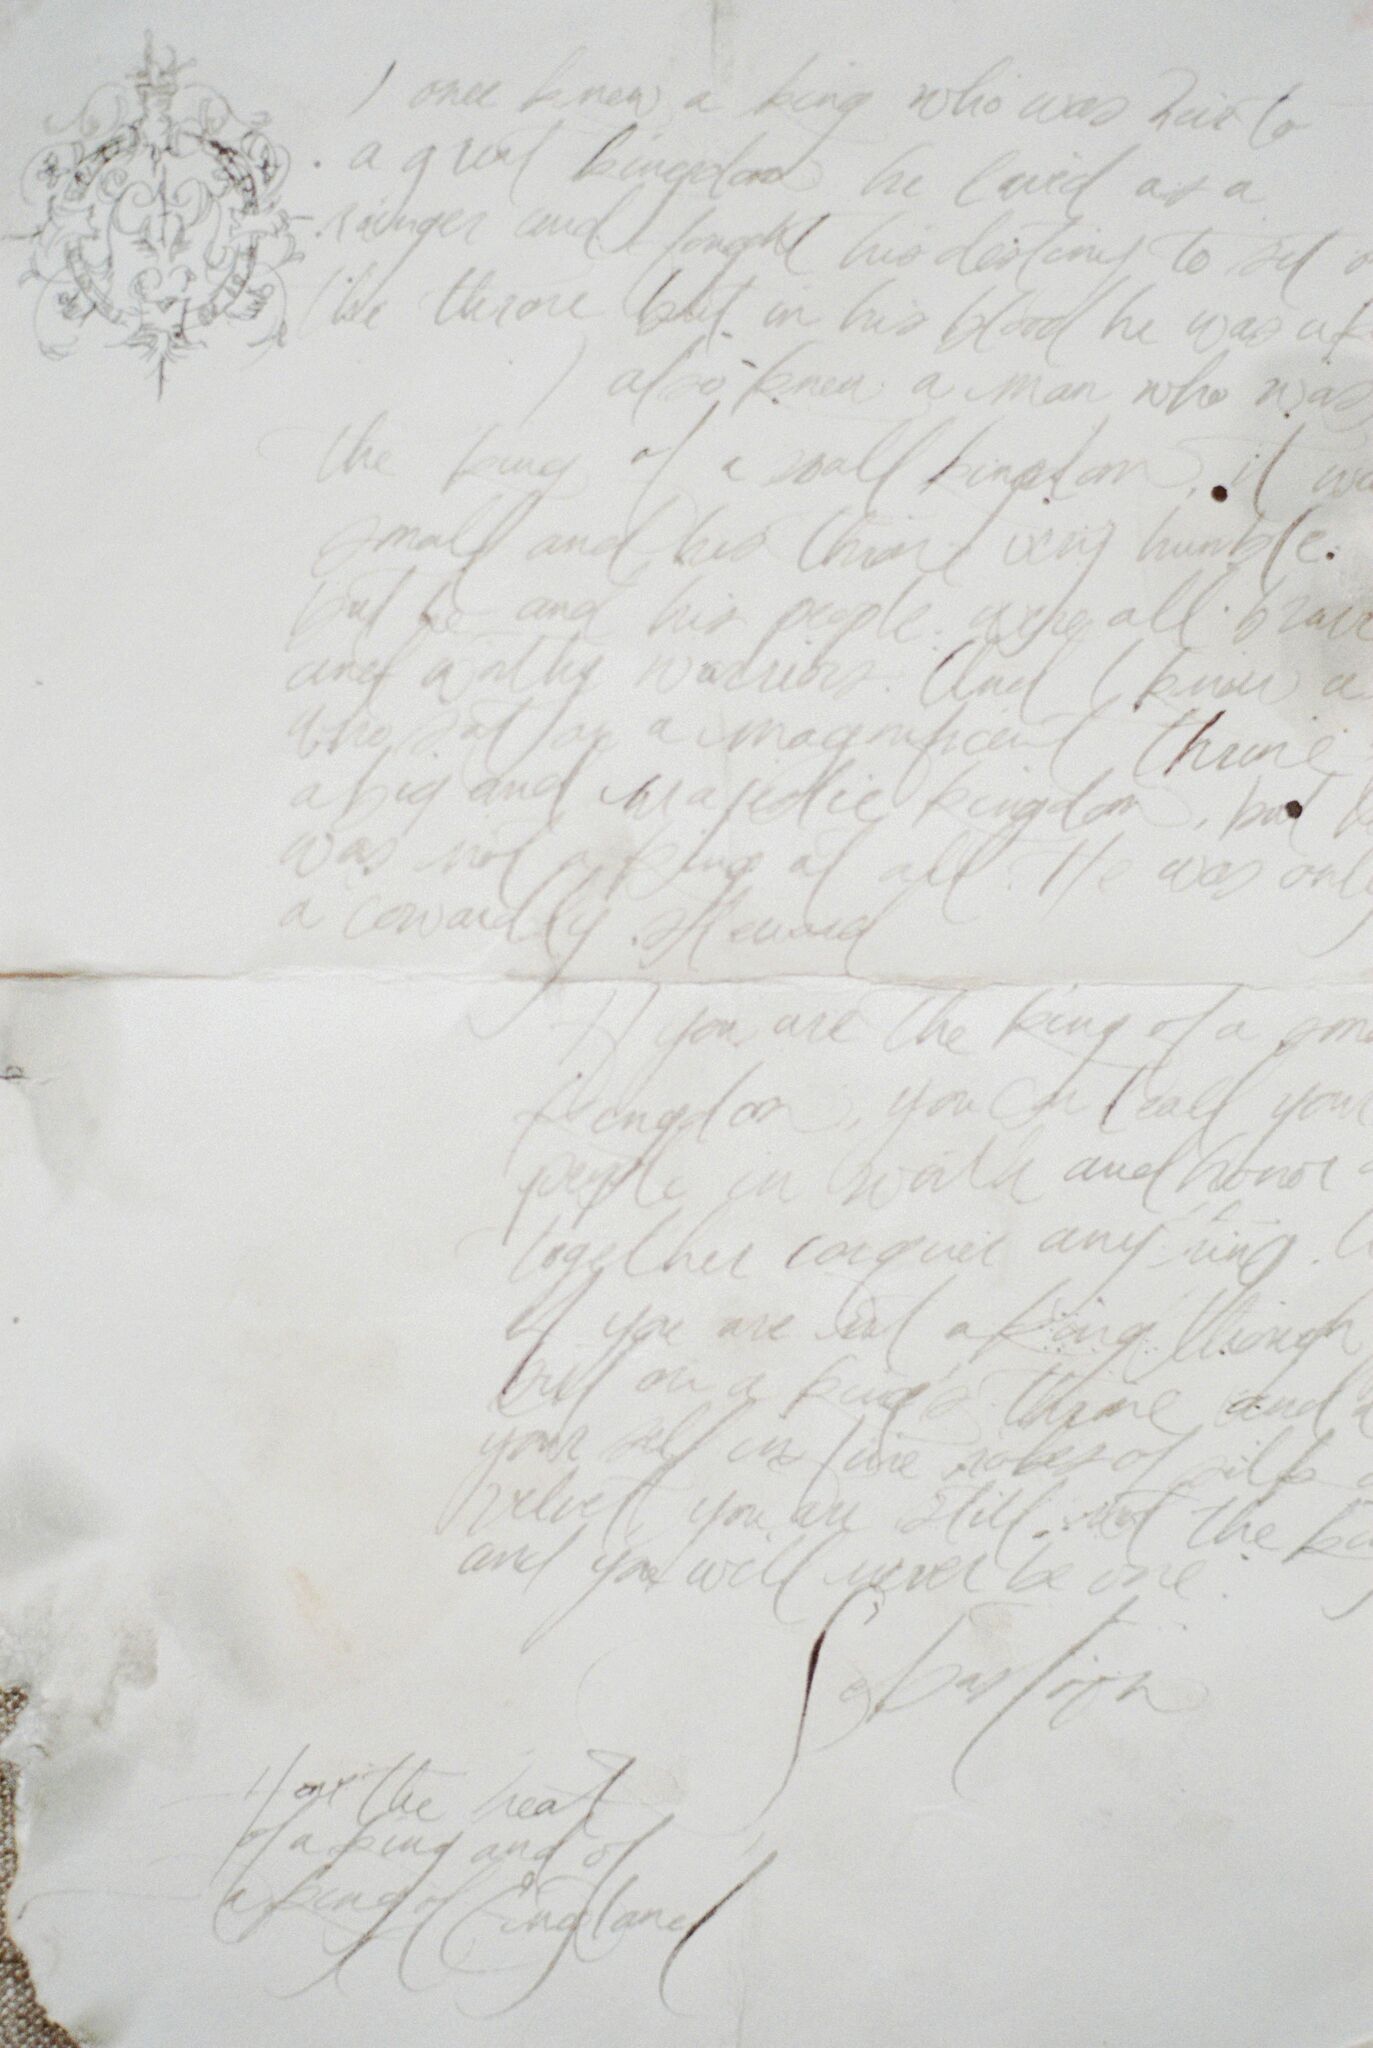 I once knew a king who was heir to
a great kingdom he lived as a
ranger and fought his destiny to sit
the throne but in his blood he was a
I also knew a man who was
the king of a small kingdom, it
small and his throne very humble.
but he and his people were all brave
and worthy warriors. And I knew a
who sat on a magnificent throne
a big and majestic kingdom, but
was not a king at all. He was only
a cowardly steward
If you are the king of a
kingdom, you lead your
people in worth and honor
together conquer any thing.
If you are not a king though
sit on a king's throne and
your self in fine robes of silk
velvet, you are still not the
and you will never be one.
Sebastian
Have the heart
of a king and of
a king of England